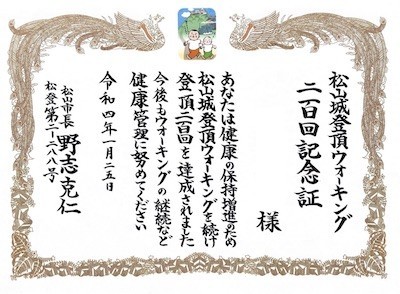 松山城登頂ウォーキング
二百回記念証
様
あなたは健康の保持増進のため
松山城登頂ウォーキングを続け
登頂二百回を達成されました
今後もウォーキングの継続など
健康管理に努めてください
令和四年一月二五日
松山市長 野志克仁
松登第二一二八八号